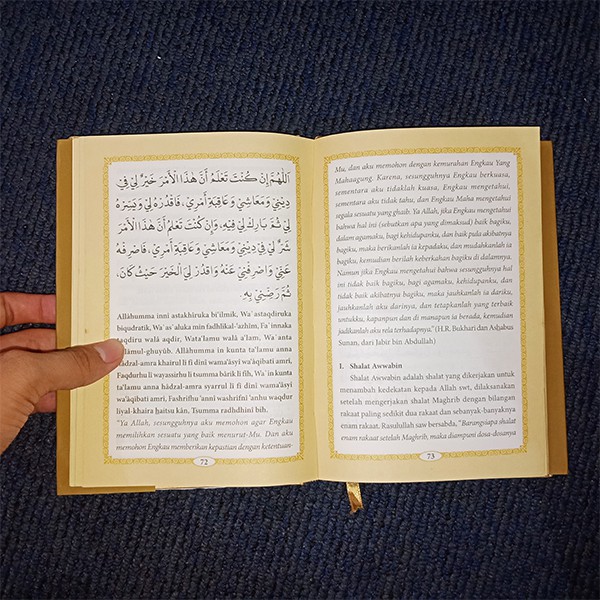 اَللّٰهُمَّ إِنْ كُنْتَ تَعْلَمُ أَنَّ هٰذَا الْأَمْرَ خَيْرٌ لِيْ فِيْ
دِيْنِيْ وَمَعَاشِيْ وَعَاقِبَةِ أَمْرِيْ، فَاقْدُرْهُ لِيْ وَيَسِّرْهُ
لِيْ ثُمَّ بَارِكْ لِيْ فِيْهِ، وَإِنْ كُنْتَ تَعْلَمُ أَنَّ هٰذَا الْأَمْرَ
شَرٌّ لِيْ فِيْ دِيْنِيْ وَمَعَاشِيْ وَعَاقِبَةِ أَمْرِيْ، فَاصْرِفْهُ
عَنِّيْ وَاصْرِفْنِيْ عَنْهُ وَاقْدُرْ لِيَ الْخَيْرَ حَيْثُ كَانَ،
ثُمَّ رَضِّنِيْ بِهِ.
Allâhumma inni astakhiruka bi'ilmik, Wa astaqdiruka
biqudratik, Wa as'aluka min fadhlikal-'azhim, Fa innaka
taqdiru walâ aqdir, Wata'lamu walâ a'lam, Wa anta
'allâmul-ghuyûb. Allâhumma in kunta ta'lamu anna
hâdzal-amra khairul li fi dini wama'âsyi wa'âqibati amri,
Faqdurhu li wayassirhu li tsumma bârik li fih, Wa in kunta
ta'lamu anna hâdzal-amra syarrul li fi dini wama'âsyi
wa'âqibati amri, Fashrifhu 'anni washrifni 'anhu waqdur
liyal-khaira haitsu kân, Tsumma radhdhini bih.
"Ya Allah, sesungguhnya aku memohon agar Engkau
memilihkan sesuatu yang baik menurut-Mu. Dan aku
memohon Engkau memberikan kepastian dengan ketentuan-
72
Mu, dan aku memohon dengan kemurahan Engkau Yang
Mahaagung. Karena, sesungguhnya Engkau berkuasa,
sementara aku tidaklah kuasa, Engkau mengetahui,
sementara aku tidak tahu, dan Engkau Maha mengetahui
segala sesuatu yang ghaib. Ya Allah, jika Engkau mengetahui
bahwa hal ini (sebutkan apa yang dimaksud) baik bagiku,
dalam agamaku, bagi kehidupanku, dan baik pula akibatnya
bagiku, maka berikanlah ia kepadaku, dan mudahkanlah ia
bagiku, kemudian berilah keberkahan bagiku di dalamnya.
Namun jika Engkau mengetahui bahwa sesungguhnya hal
ini tidak baik bagiku, bagi agamaku, kehidupanku, dan
tidak baik akibatnya bagiku, maka jauhkanlah ia dariku,
jauhkanlah aku darinya, dan tetapkanlah yang terbaik
untukku, kapanpun dan di manapun ia berada, kemudian
jadikanlah aku rela terhadapnya." (H.R. Bukhari dan Ashabus
Sunan, dari Jabir bin Abdullah)
1. Shalat Awwabin
Shalat Awwabin adalah shalat yang dikerjakan untuk
menambah kedekatan kepada Allah swt, dilaksanakan
setelah mengerjakan shalat Maghrib dengan bilangan
rakaat paling sedikit dua rakaat dan sebanyak-banyaknya
enam rakaat. Rasulullah saw bersabda, "Barangsiapa shalat
enam rakaat setelah Maghrib, maka diampuni dosa-dosanya
73